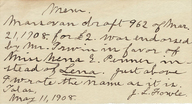 Mem.
Marsovan draft 962 of Mar.
21, 1908. for £2 was endorsed
by Mr. Irwin in favor of
Miss Nena E. Penner, in
stead of Lena. Just above
I wrote the name as it is.
Talas. J. L. Fowle.
May 11, 1908.